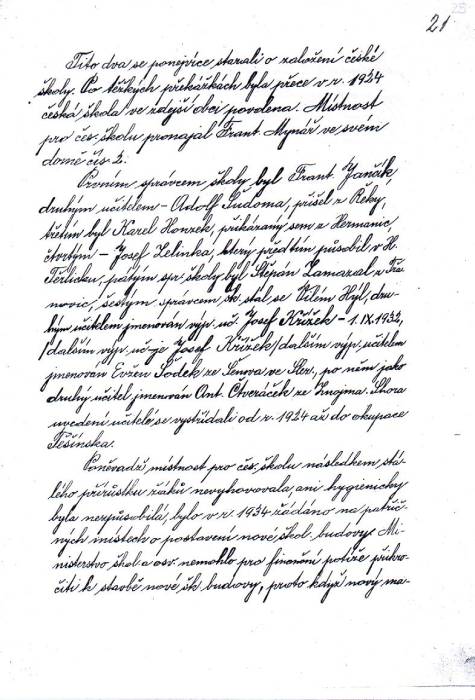 21
Tito dva se ponejvíce starali o založení české
školy. Po těžkých překážkách byla přece v r. 1924
česká škola ve zdejší obci povolena. Místnost
pro čes. školu pronajal Frant. Mynář ve svém
domě čís. 2.
Prvním správcem školy byl Frant. Jančák,
druhým učitelem – Adolf Sudoma, přišel z Řeky,
třetím byl Karel Honzek, přikázaný sem z Hermanic,
čtvrtým – Josef Zelinka, který předtím působil v H.
Těrlicku, pátým spr. školy byl Štěpán Zamazal z Tra-
novic, šestým správcem šk. stal se Vilém Hýl, dru-
hým učitelem jmenován výp. uč. Josef Křížek – 1. IX. 1932,
/dalším výp. uč-je Josef Křížek/ dalším výp. učitelem
jmenován Evžen Sodek ze Šenova ve Slez., po něm jako
druhý učitel jmenován Ant. Čtveráček ze Znojma. Shora
uvedení učitelé se vystřídali od r. 1924 až do okupace
Těšínska.
Poněvadž místnost pro čes. školu následkem stá-
lého přírůstku žáků nevyhovovala, ani hygienicky
byla nezpůsobilá, bylo v r. 1934 žádáno na patřič-
ných místech o postavení nové škol. budovy. Mi-
nisterstvo škol. a osv. nemohlo pro finanční potíže přikro-
čiti k stavbě nové šk. budovy, proto když nový ma-